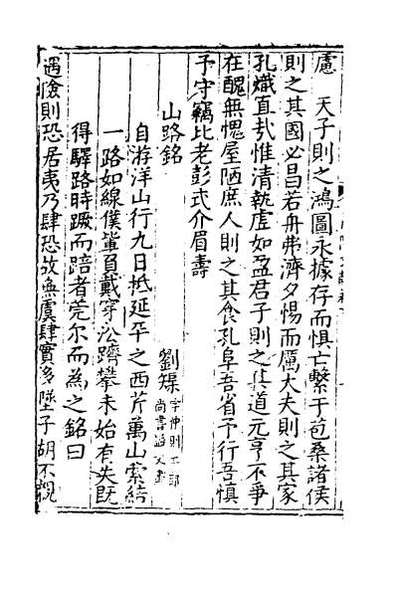 慮　天子則之鴻圖永據存而惧亡繫于苞桑諸侯
則之其國必昌若舟弗濟夕惕而厲大夫則之其家
孔熾直哉惟清執虛如盈君子則之其道元亨不爭
在醜無愧屋陋庶人則之其食孔阜吾省予行吾慎
予守竊比老彭式介眉壽
山路銘
劉㮚
字仲則工部
尚書
自游洋山行九日抵延平之西芹萬山索結
一路如線僕輩負戴穿㳂躋攀未始有失既
得驛路時蹶而踣者莞尔而為之銘曰
遇險則恐居夷乃肆恐故無虞肆實多墜子胡不觀